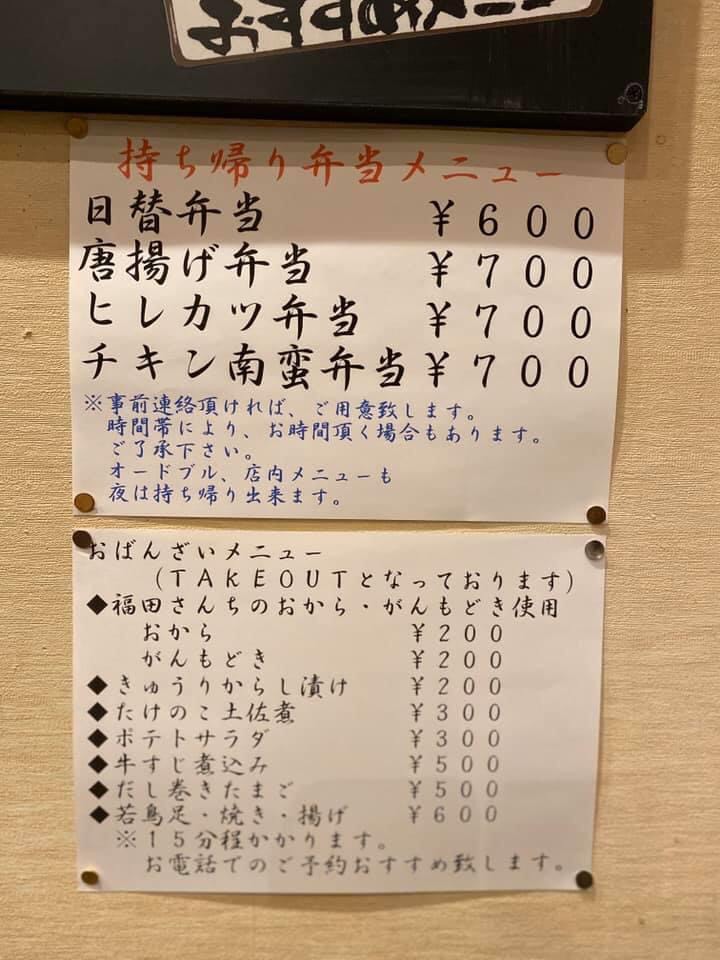 おすすめメニュー
持ち帰り弁当メニュー
日替弁当 ¥600
唐揚げ弁当 ¥700
ヒレカツ弁当 ¥700
チキン南蛮弁当 ¥700
※事前連絡頂ければ、ご用意致します。
時間帯により、お時間頂く場合もあります。
ご了承下さい。
オードブル、店内メニューも
夜は持ち帰り出来ます。
おばんざいメニュー
(TAKEOUTとなっております)
◆福田さんちのおから・がんもどき使用
おから ¥200
がんもどき ¥200
◆きゅうりからし漬け ¥200
◆たけのこ土佐煮 ¥300
◆ポテトサラダ ¥300
◆牛すじ煮込み ¥500
◆だし巻きたまご ¥500
◆若鳥足・焼き・揚げ ¥600
※15分程かかります。
お電話でのご予約おすすめ致します。